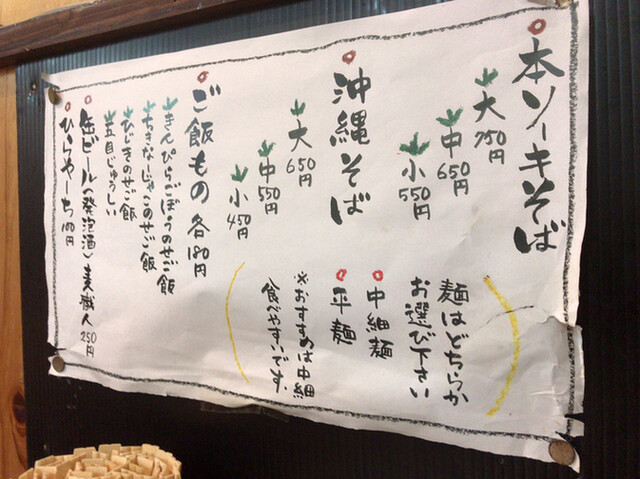 本ソーキそば
大 750円
中 650円
小 550円
麺はどちらか
お選び下さい
中細麺
平麺
※おすすめは中細
食べやすいです、
沖縄そば
大 650円
中 550円
小 450円
ご飯もの 各180円
きんぴらごぼうのまぜご飯
ちきなーじゃこのまぜご飯
ひじきのまぜご飯
五目じゅうしい
缶ビール(発泡酒)麦職人 250円
ひらやーち 100円